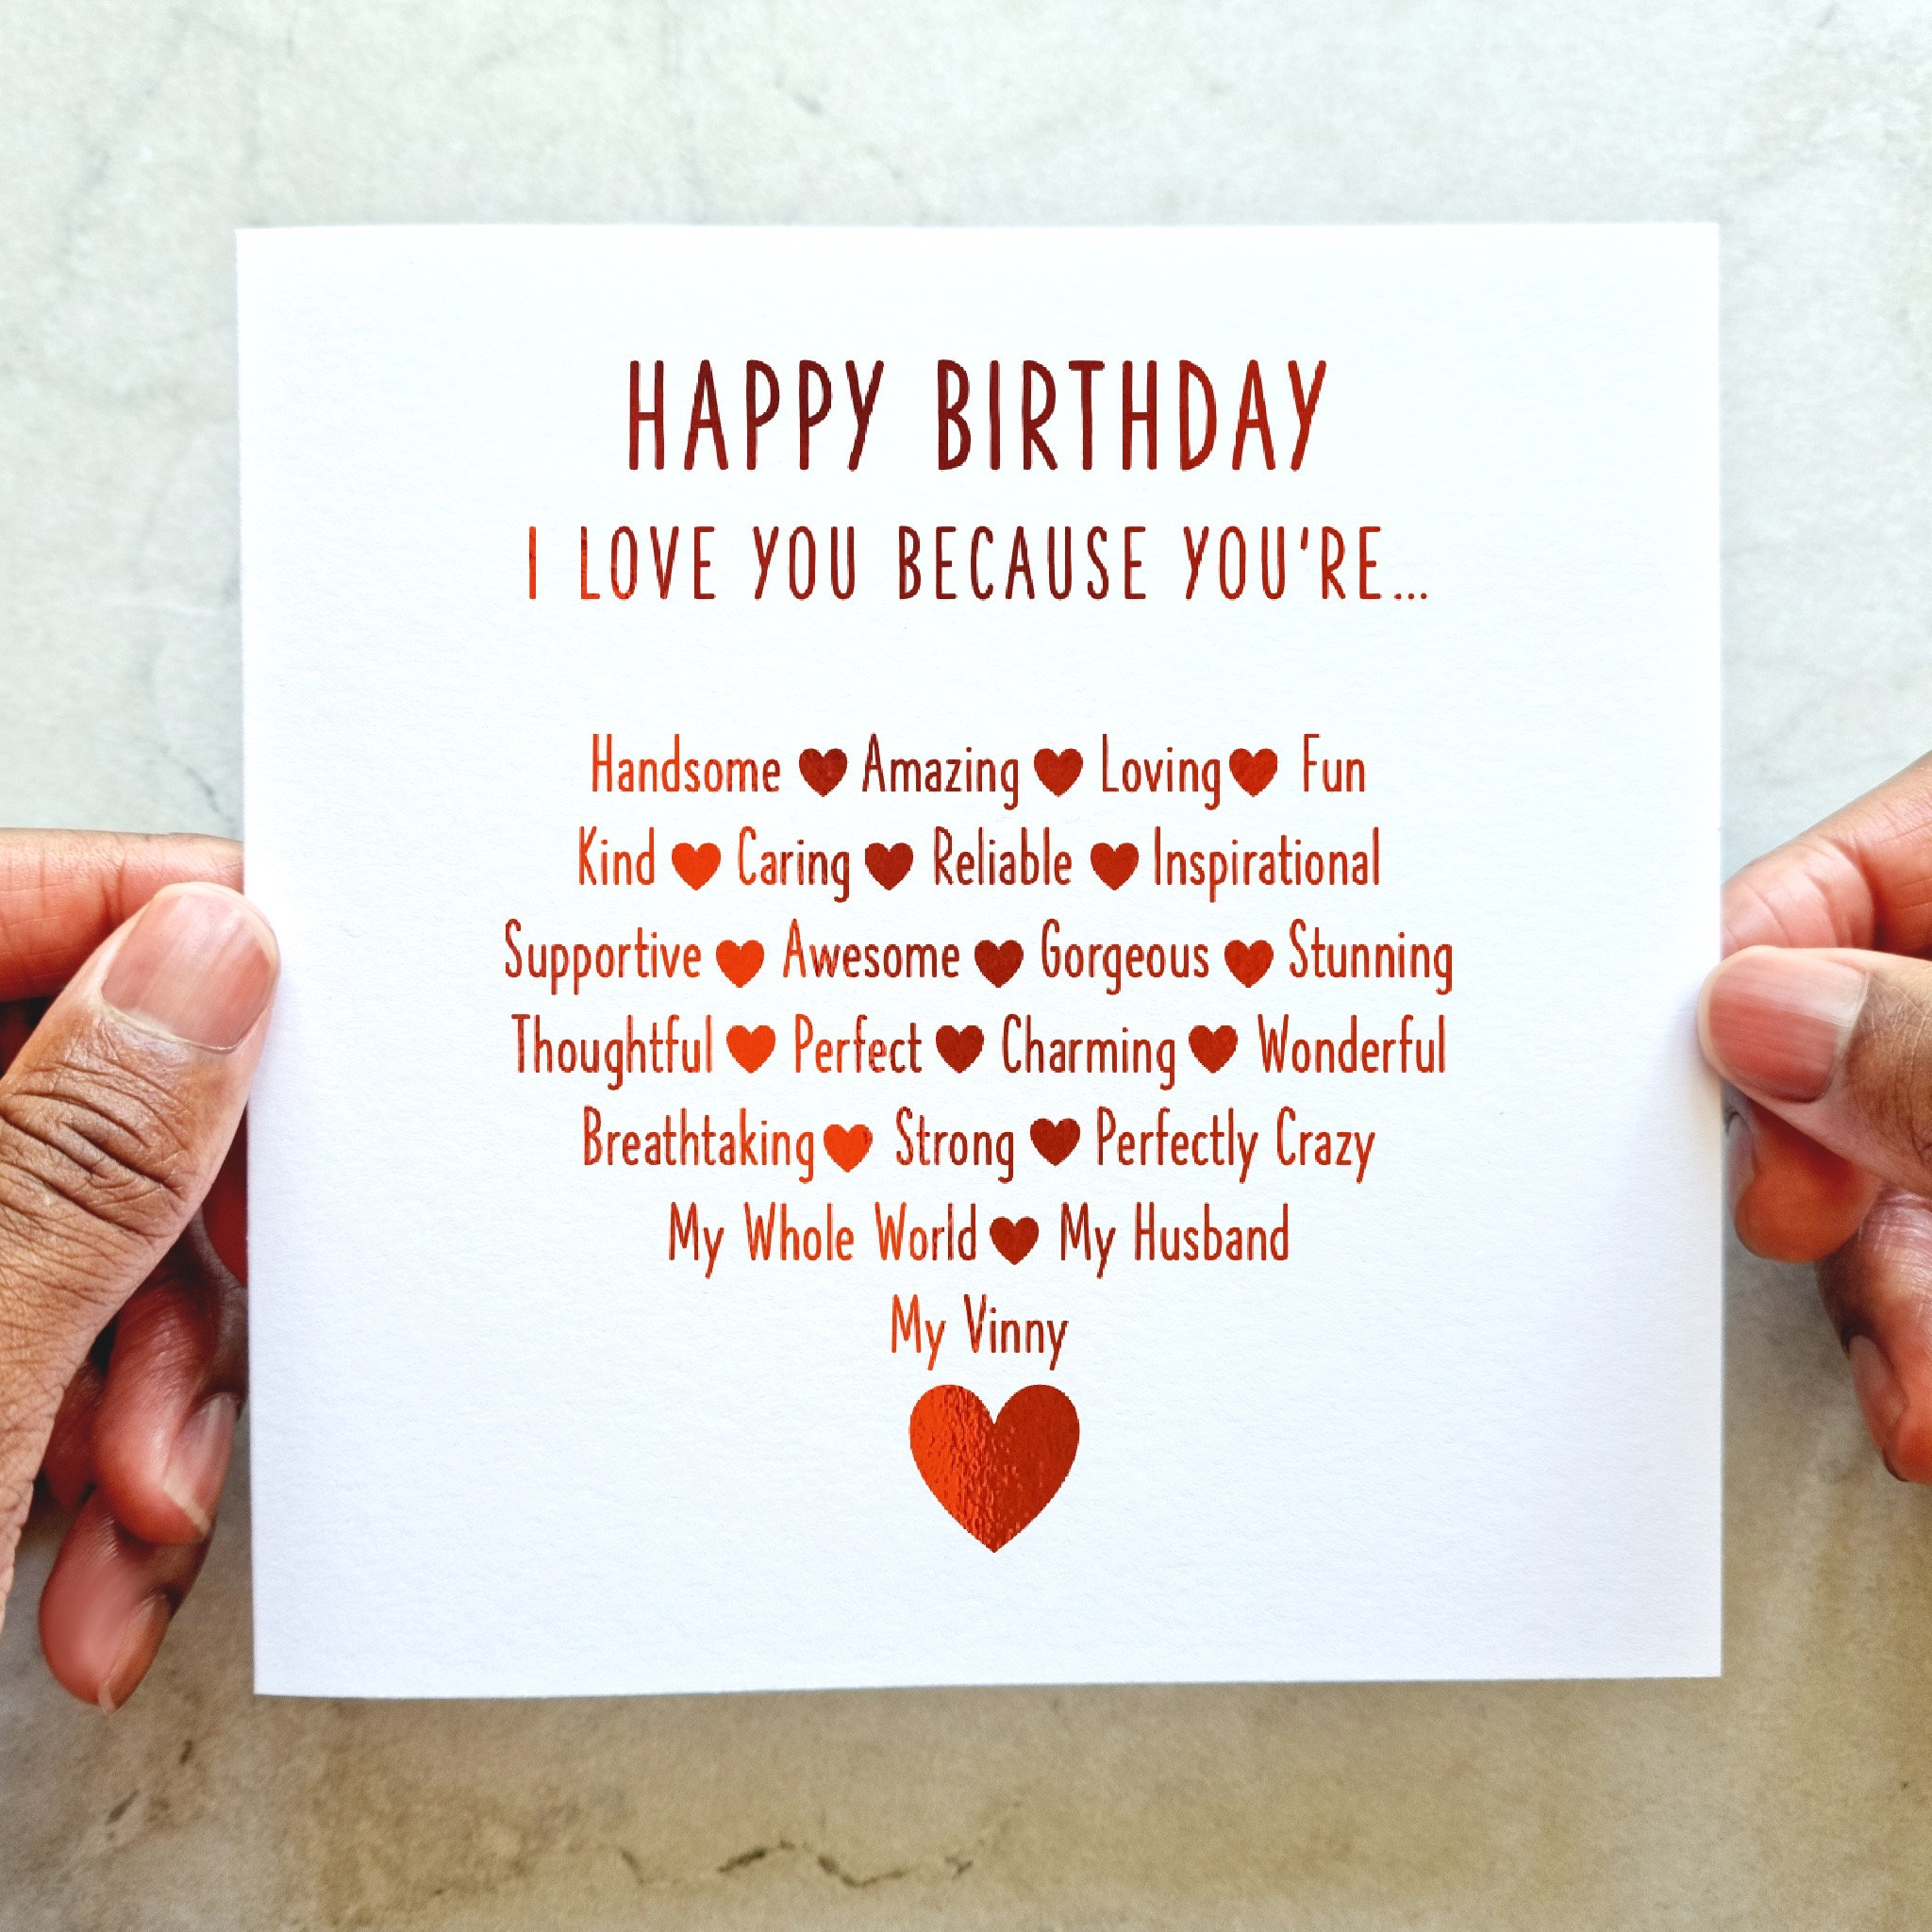 HAPPY BIRTHDAY
I LOVE YOU BECAUSE YOU'RE...
Handsome ♥ Amazing ♥ Loving ♥ Fun
Kind ♥ Caring ♥ Reliable ♥ Inspirational
Supportive ♥ Awesome ♥ Gorgeous ♥ Stunning
Thoughtful ♥ Perfect ♥ Charming ♥ Wonderful
Breathtaking ♥ Strong ♥ Perfectly Crazy
My Whole World ♥ My Husband
My Vinny